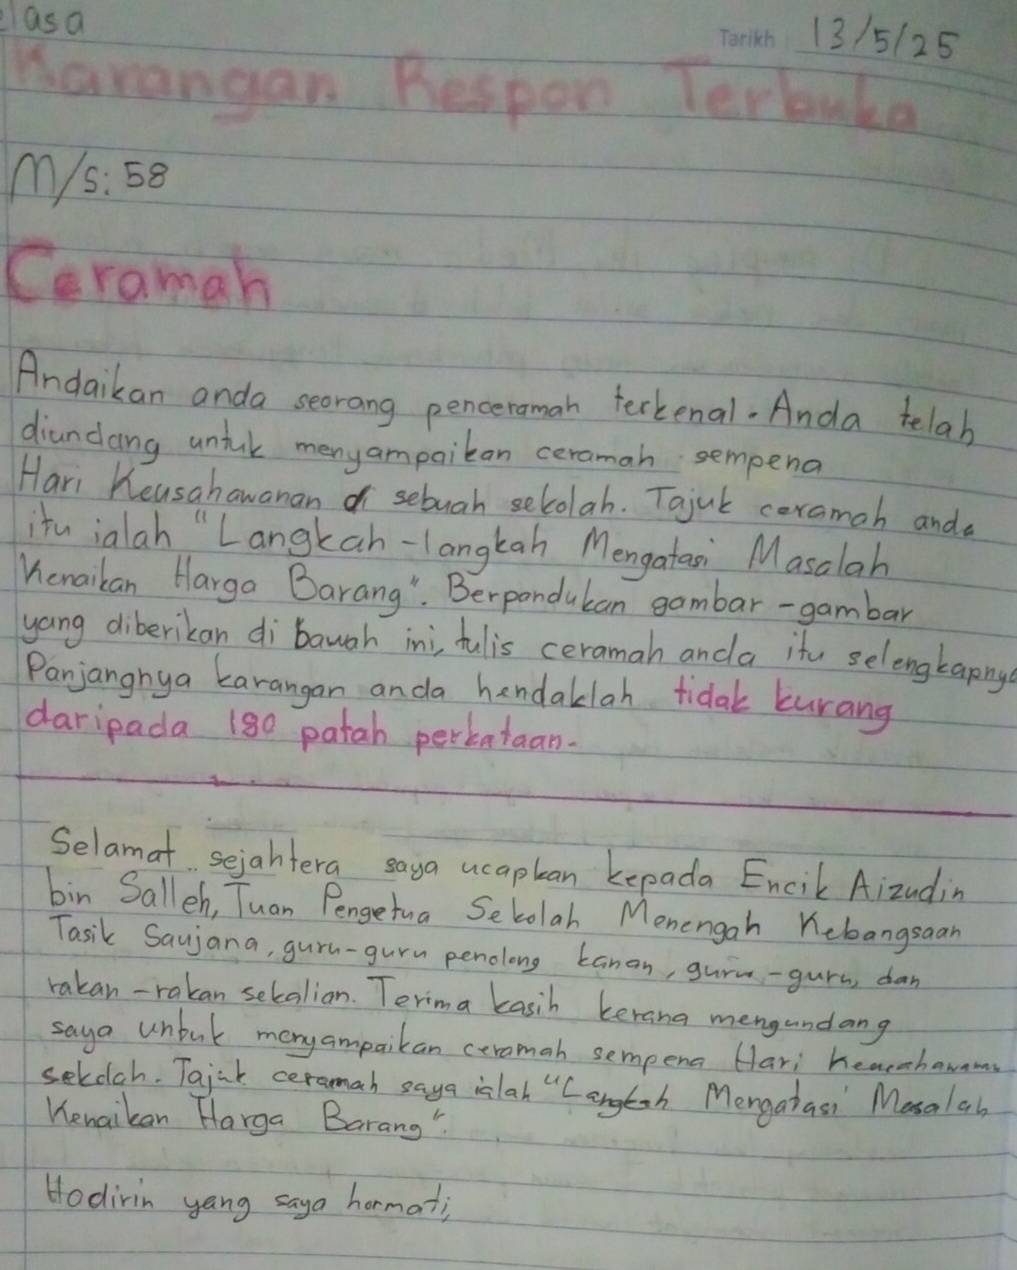 lasa
Tarikh 13/5/25
Karangan Respon Terbuka
M/s: 58
Ceramah
Andaikan anda seorang penceramah terkenal. Anda telah
diundang untuk menyampaikan ceramah sempena
Hari Keusahawanan di sebuah sekolah. Tajuk ceramah anda
itu ialah "Langkah-langkah Mengatasi Masalah
Kenaikan Harga Barang". Berpandukan gambar-gambar
yang diberikan di bawah ini, tulis ceramah anda itu selengkapnya
Panjangnya karangan anda hendaklah tidak kurang
daripada 180 patah perkataan.
Selamat sejahtera saya ucapkan kepada Encik Aizudin
bin Salleh, Tuan Pengetua Sekolah Menengah Kebangsaan
Tasik Saujana, guru-guru penolong kanan, guru-guru, dan
rakan-rakan sekalian. Terima kasih kerana mengundang
saya untuk menyampaikan ceramah sempena Hari
sekolah. Tajuk ceramah saya ialah "Langkah Mengatasi Masalah
Kenaikan Harga Barang".
Hadirin yang saya hormati,